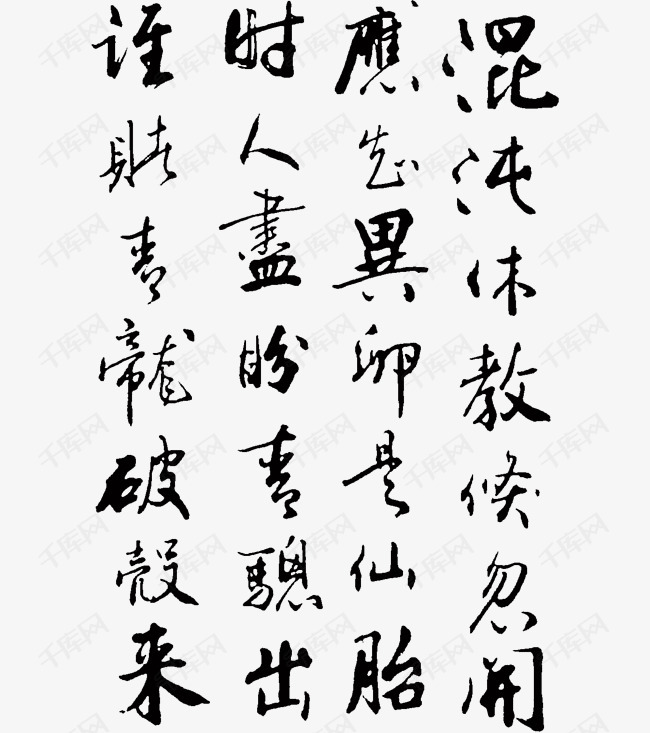 混沌休教倏忽開
應知異卵是仙胎
時人盡盼青驄出
誰賭青龍破殼來
千库网